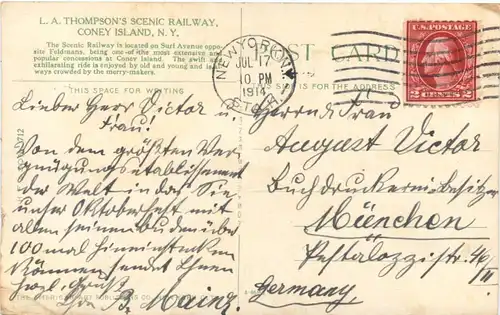 L. A. THOMPSON'S SCENIC RAILWAY,
CONEY ISLAND, N. Y.
The Scenic Railway is located on Surf Avenue oppo-
site Feldmans, being one of the most extensive and
popular concessions at Coney Island. The swift and
exhilarating ride is enjoyed by old and young and is al-
ways crowded by the merry-makers.
POST CARD
THIS SPACE FOR WRITING
THIS SIDE IS FOR THE ADDRESS
NEW YORK, N.Y.
JUL 17
10 PM
1914
U.S. POSTAGE
2 CENTS 2
Lieber Herr Victor u.
Frau!
Von dem größten Ver
gnügungsetablissement
der Welt in das Sie
unser Oktoberfest mit
allen seinen buden über
100 mal hineinstecken
können sendet Ihnen
herzl. Grüße
B. Mainz.
Herrn & Frau
August Victor
Buchdruckereibesitzer
München
Pestalozzistr. 46/II
Germany.